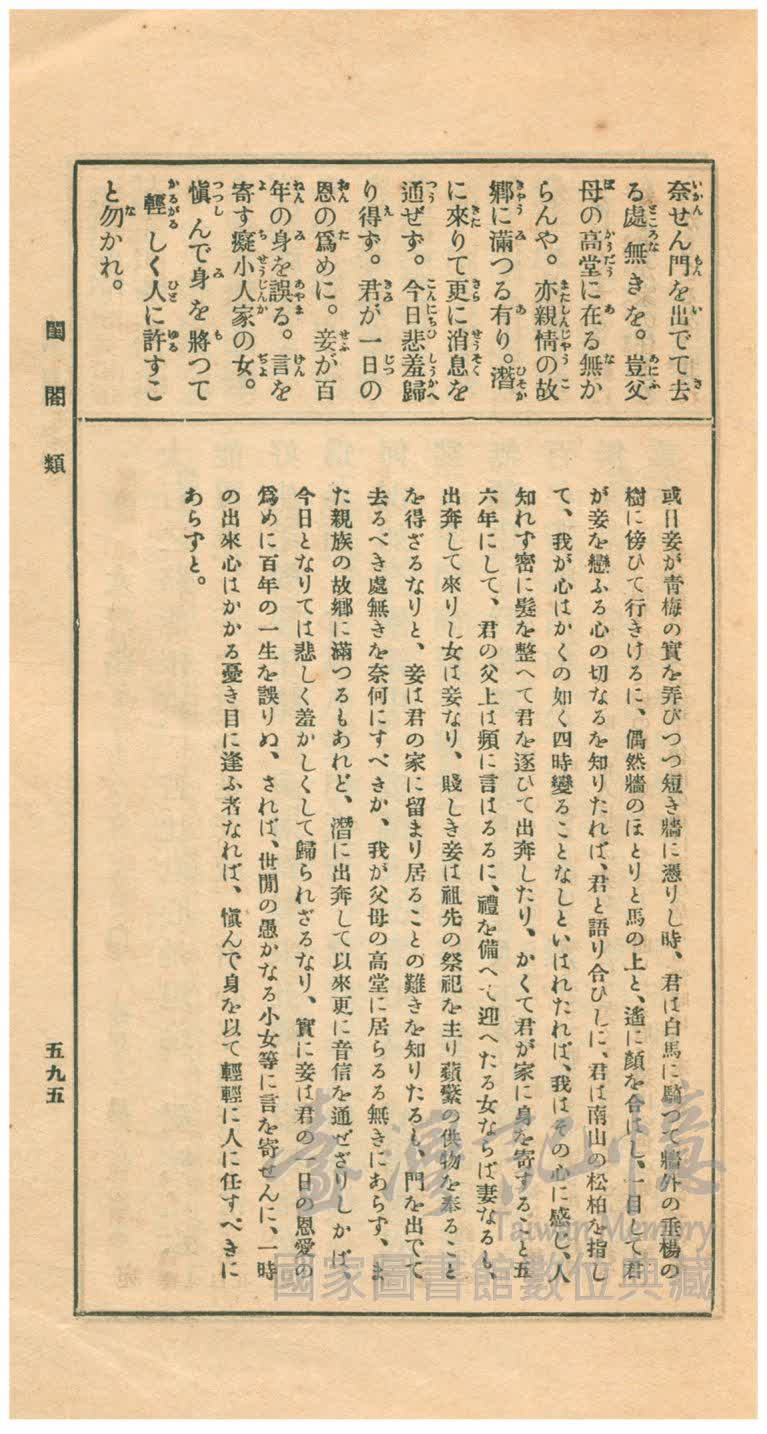 奈せん門を出でて去
る處無きを。豈父
母の高堂に在る無か
らんや。亦親情の故
鄕に滿つる有り。潛
に來りて更に消息を
通ぜず。今日悲羞歸
り得ず。君が一日の
恩の爲めに。妾が百
年の身を誤る。言を
寄す癡小人家の女。
愼んで身を將つて
輕しく人に許すこ
と勿かれ。
或日妾が靑梅の實を弄びつつ短き牆に憑りし時、君は白馬に騎つて牆外の垂楊の
樹に傍ひて行きけるに、偶然牆のほとりと馬の上と、遙に顏を合はし、一目して君
が妾を戀ふる心の切なるを知りたれば、君と語り合ひしに、君は南山の松柏を指し
て、我が心はかくの如く四時變ることなしといはれたれば、我はその心に感じ、人
知れず密に髮を整へて君を逐ひて出奔したり、かくて君が家に身を寄すること五
六年にして、君の父上は頻に言はるるに、禮を備へて迎へたる女ならば妻なるも、
出奔して來りし女は妾なり、賤しき妾は祖先の祭祀を主り蘋蘩の供物を奉ること
を得ざるなりと、妾は君の家に留まり居ることの難きを知りたるも、門を出でて
去るべき處無きを奈何にすべきか、我が父母の高堂に居らるる無きにあらず、ま
た親族の故鄕に滿つるもあれど、潛に出奔して以來更に音信を通ぜざりしかば、
今日となりては悲しく羞かしくして歸られざるなり、實に妾は君の一日の恩愛の
爲めに百年の一生を誤りぬ、されば、世間の愚かなる小女等に言を寄せんに、一時
の出來心はかかる憂き目に逢ふ者なれば、愼んで身を以て輕輕に人に任すべきに
あらずと。
閨閤類
五九五
臺灣記憶
Taiwan Memory
國家圖書館數位典藏